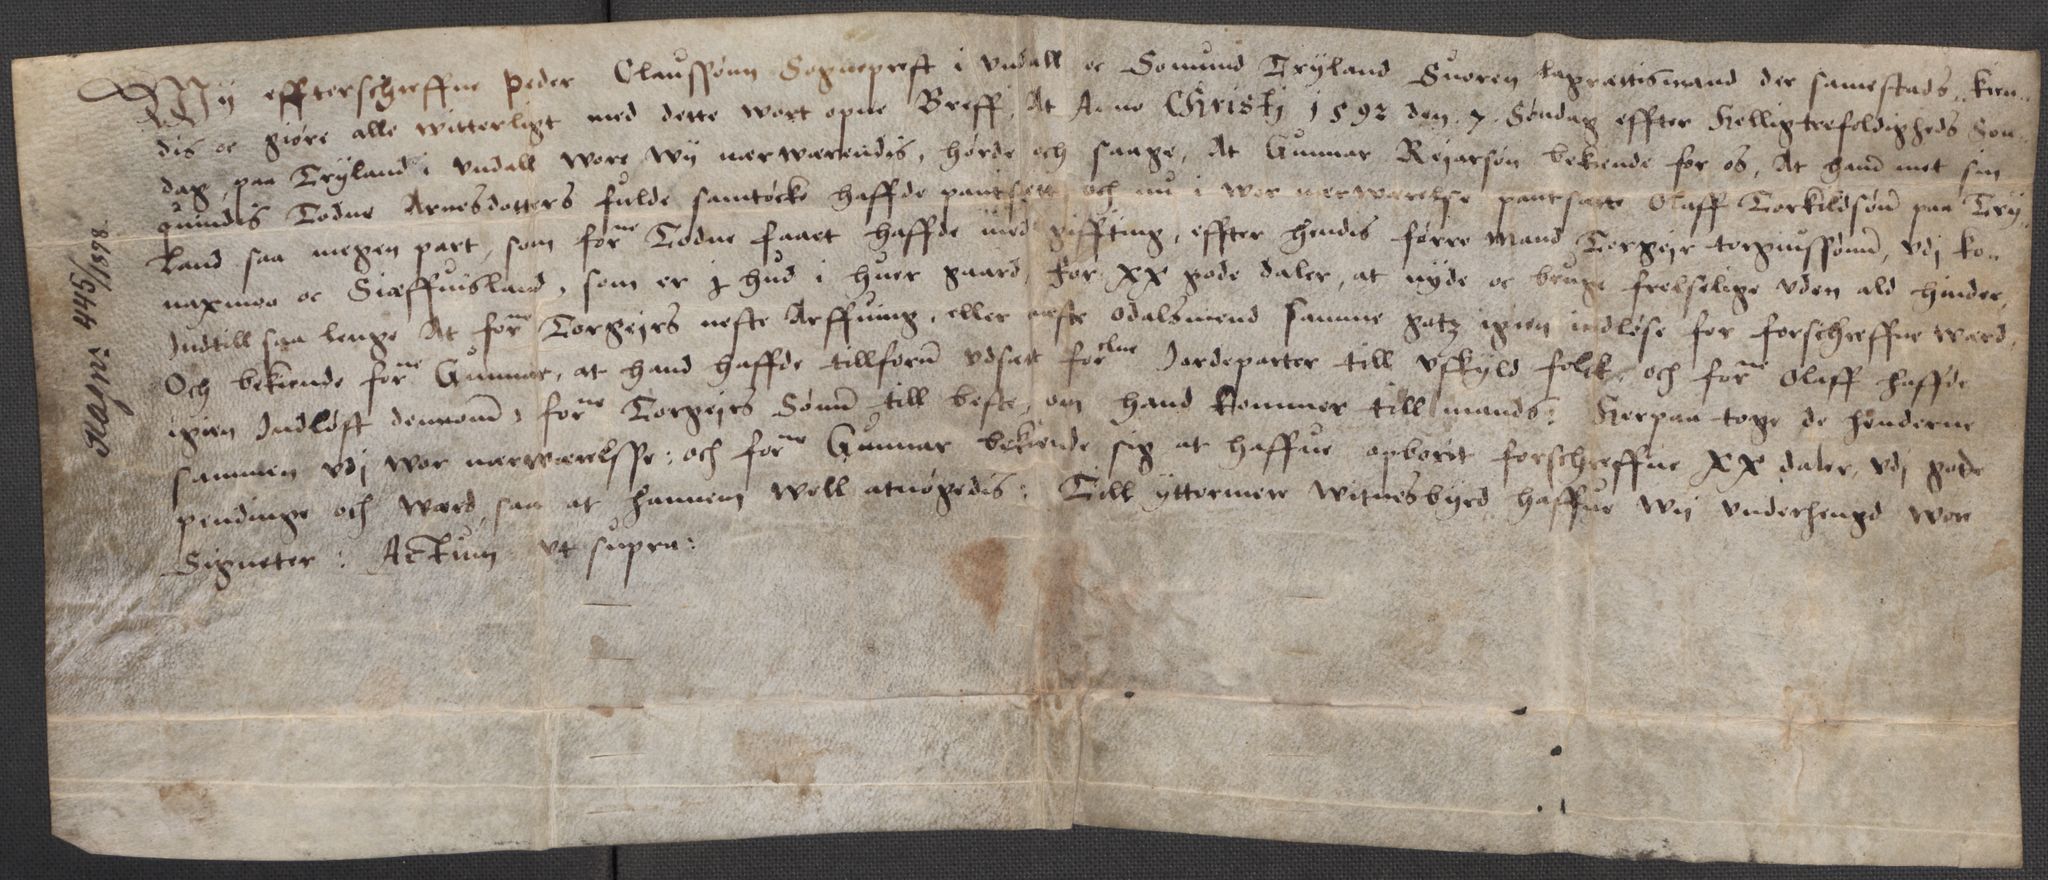 Wij effterschreffne Peder Claussønn Sogneprest i Undall oc Somund Tryland Suoren lagrættismand der samestads, kien-
dis oc giøre alle witterligt med dette wort opne Breff, At Anno Christj 1592 den 7. Søndag effter Hellig trefoldigheds Søn-
dag, paa Tryland i Undall wore wij nærwærendis, hørde och saage, At Gunnar Rejarsøn bekiende for os, At hand met sin
quindis Todne Arnesdotters fulde samtøcke haffde pantsett och nu i wor nerwærelse pantsatte Olaff Torkildsønn paa Try-
land saa megen part, som forne Todne faaet haffde med giffting, effter hendis førre Mand Torgeir torgiussønn, vdj ko-
naxmoo oc Siæffuisland, som er j hud i huer gaard, for XX gode daler, at nyde oc bruge frelselige vden ald hinder,
Indtill saa lenge At forne Torgejrs neste Arffuing, eller neste odalsmend samme gotz igien indløse for forschreffne ward,
Och bekiende forne Gunnar, at hand haffde tillførn vdsatt forne Jordeparter till vskyld folck, och forne Olaff haffde
igien Indløst dennom, forne Torgejrs Sønn till beste, om hand kommer till mands: Herpaa toge de henderne
sammen vdj wor nærwærelsse: och forne Gunnar bekiende sig at haffue opborit forschreffne XX daler, vdj gode
pendinge och ward, saa at hannem well atnøgedis: Till yttermere witnesbyrd haffue wij vnderhengd wore
Signeter: Actum vt supra:
4445/1898